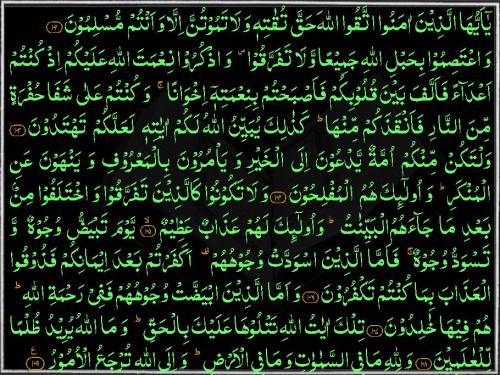 يٰۤاَيُّهَا الَّذِيْنَ اٰمَنُوا اتَّقُوا اللّٰهَ حَقَّ تُقٰتِهٖ وَلَا تَمُوْتُنَّ اِلَّا وَاَنْتُمْ مُّسْلِمُوْنَ ﴿۱۰۲﴾
وَاعْتَصِمُوْا بِحَبْلِ اللّٰهِ جَمِيْعًا وَّلَا تَفَرَّقُوْا ۪ وَاذْكُرُوْا نِعْمَتَ اللّٰهِ عَلَيْكُمْ اِذْ كُنْتُمْ
اَعْدَآءً فَاَلَّفَ بَيْنَ قُلُوْبِكُمْ فَاَصْبَحْتُمْ بِنِعْمَتِهٖۤ اِخْوَانًا ۚ وَكُنْتُمْ عَلٰى شَفَا حُفْرَةٍ
مِّنَ النَّارِ فَاَنْقَذَكُمْ مِّنْهَا ؕ كَذٰلِكَ يُبَيِّنُ اللّٰهُ لَكُمْ اٰيٰتِهٖ لَعَلَّكُمْ تَهْتَدُوْنَ ﴿۱۰۳﴾
وَلْتَكُنْ مِّنْكُمْ اُمَّةٌ يَّدْعُوْنَ اِلَى الْخَيْرِ وَيَاْمُرُوْنَ بِالْمَعْرُوْفِ وَيَنْهَوْنَ عَنِ
الْمُنْكَرِ ؕ وَاُولٰٓئِكَ هُمُ الْمُفْلِحُوْنَ ﴿۱۰۴﴾ وَلَا تَكُوْنُوْا كَالَّذِيْنَ تَفَرَّقُوْا وَاخْتَلَفُوْا مِنْۢ
بَعْدِ مَا جَآءَهُمُ الْبَيِّنٰتُ ؕ وَاُولٰٓئِكَ لَهُمْ عَذَابٌ عَظِيْمٌ ﴿۱۰۵﴾ ۙ يَّوْمَ تَبْيَضُّ وُجُوْهٌ وَّ
تَسْوَدُّ وُجُوْهٌ ۚ فَاَمَّا الَّذِيْنَ اسْوَدَّتْ وُجُوْهُهُمْ ۟ اَكَفَرْتُمْ بَعْدَ اِيْمَانِكُمْ فَذُوْقُوا
الْعَذَابَ بِمَا كُنْتُمْ تَكْفُرُوْنَ ﴿۱۰۶﴾ وَاَمَّا الَّذِيْنَ ابْيَضَّتْ وُجُوْهُهُمْ فَفِيْ رَحْمَةِ اللّٰهِ ؕ
هُمْ فِيْهَا خٰلِدُوْنَ ﴿۱۰۷﴾ تِلْكَ اٰيٰتُ اللّٰهِ نَتْلُوْهَا عَلَيْكَ بِالْحَقِّ ؕ وَمَا اللّٰهُ يُرِيْدُ ظُلْمًا
لِّلْعٰلَمِيْنَ ﴿۱۰۸﴾ وَلِلّٰهِ مَا فِي السَّمٰوٰتِ وَمَا فِي الْاَرْضِ ؕ وَاِلَى اللّٰهِ تُرْجَعُ الْاُمُوْرُ ﴿۱۰۹﴾ ع